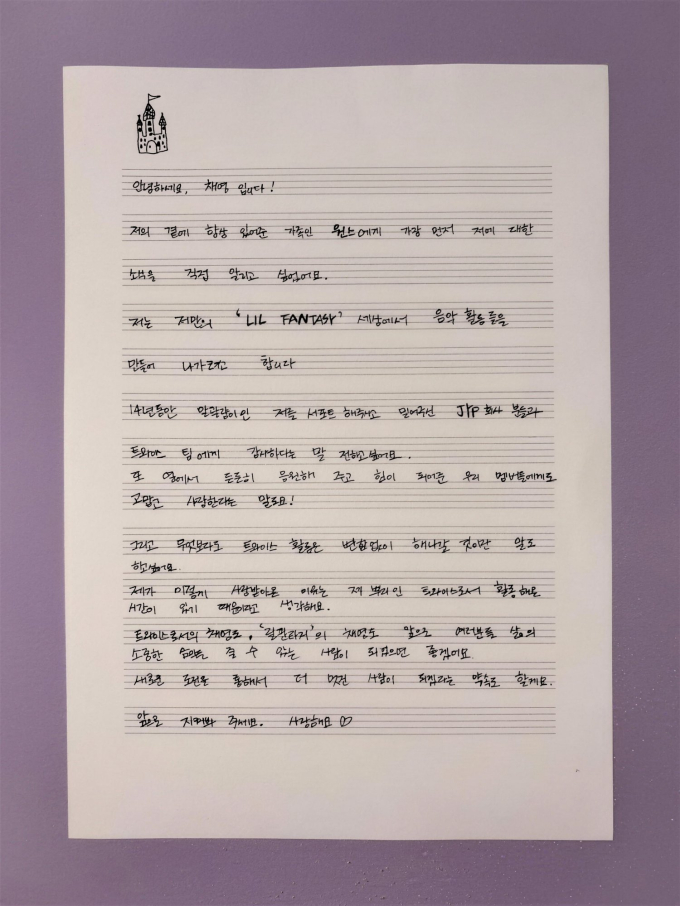 안녕하세요, 채영 입니다!
저의 곁에 항상 있어준 가족인 원스에게 가장 먼저 저에 대한
소식을 직접 알리고 싶었어요.
저는 저만의 'LIL FANTASY' 세상에서 음악 활동들을
만들어 나가려고 합니다
14년동안 말괄량이인 저를 서포트 해주시고 믿어주신 JYP 회사 분들과
트와이스 팀에게 감사하다는 말 전하고싶어요.
또 옆에서 든든히 응원해 주고 힘이 되어준 우리 멤버들에게도
고맙고 사랑한다는 말도요!
그리고 무엇보다도 트와이스 활동은 변함없이 해나갈 것이란 말도
하고싶어요.
제가 이렇게 사랑받아온 이유는 제 뿌리인 트와이스로서 활동해온
시간이 있기 때문이라고 생각해요.
트와이스로서의 채영도, '릴판타지'의 채영도 앞으로 여러분들 삶의
소중한 순간을 줄 수 있는 사람이 되었으면 좋겠어요.
새로운 도전을 통해서 더 멋진 사람이 되겠다는 약속도 할게요.
앞으로 지켜봐 주세요. 사랑해요♡